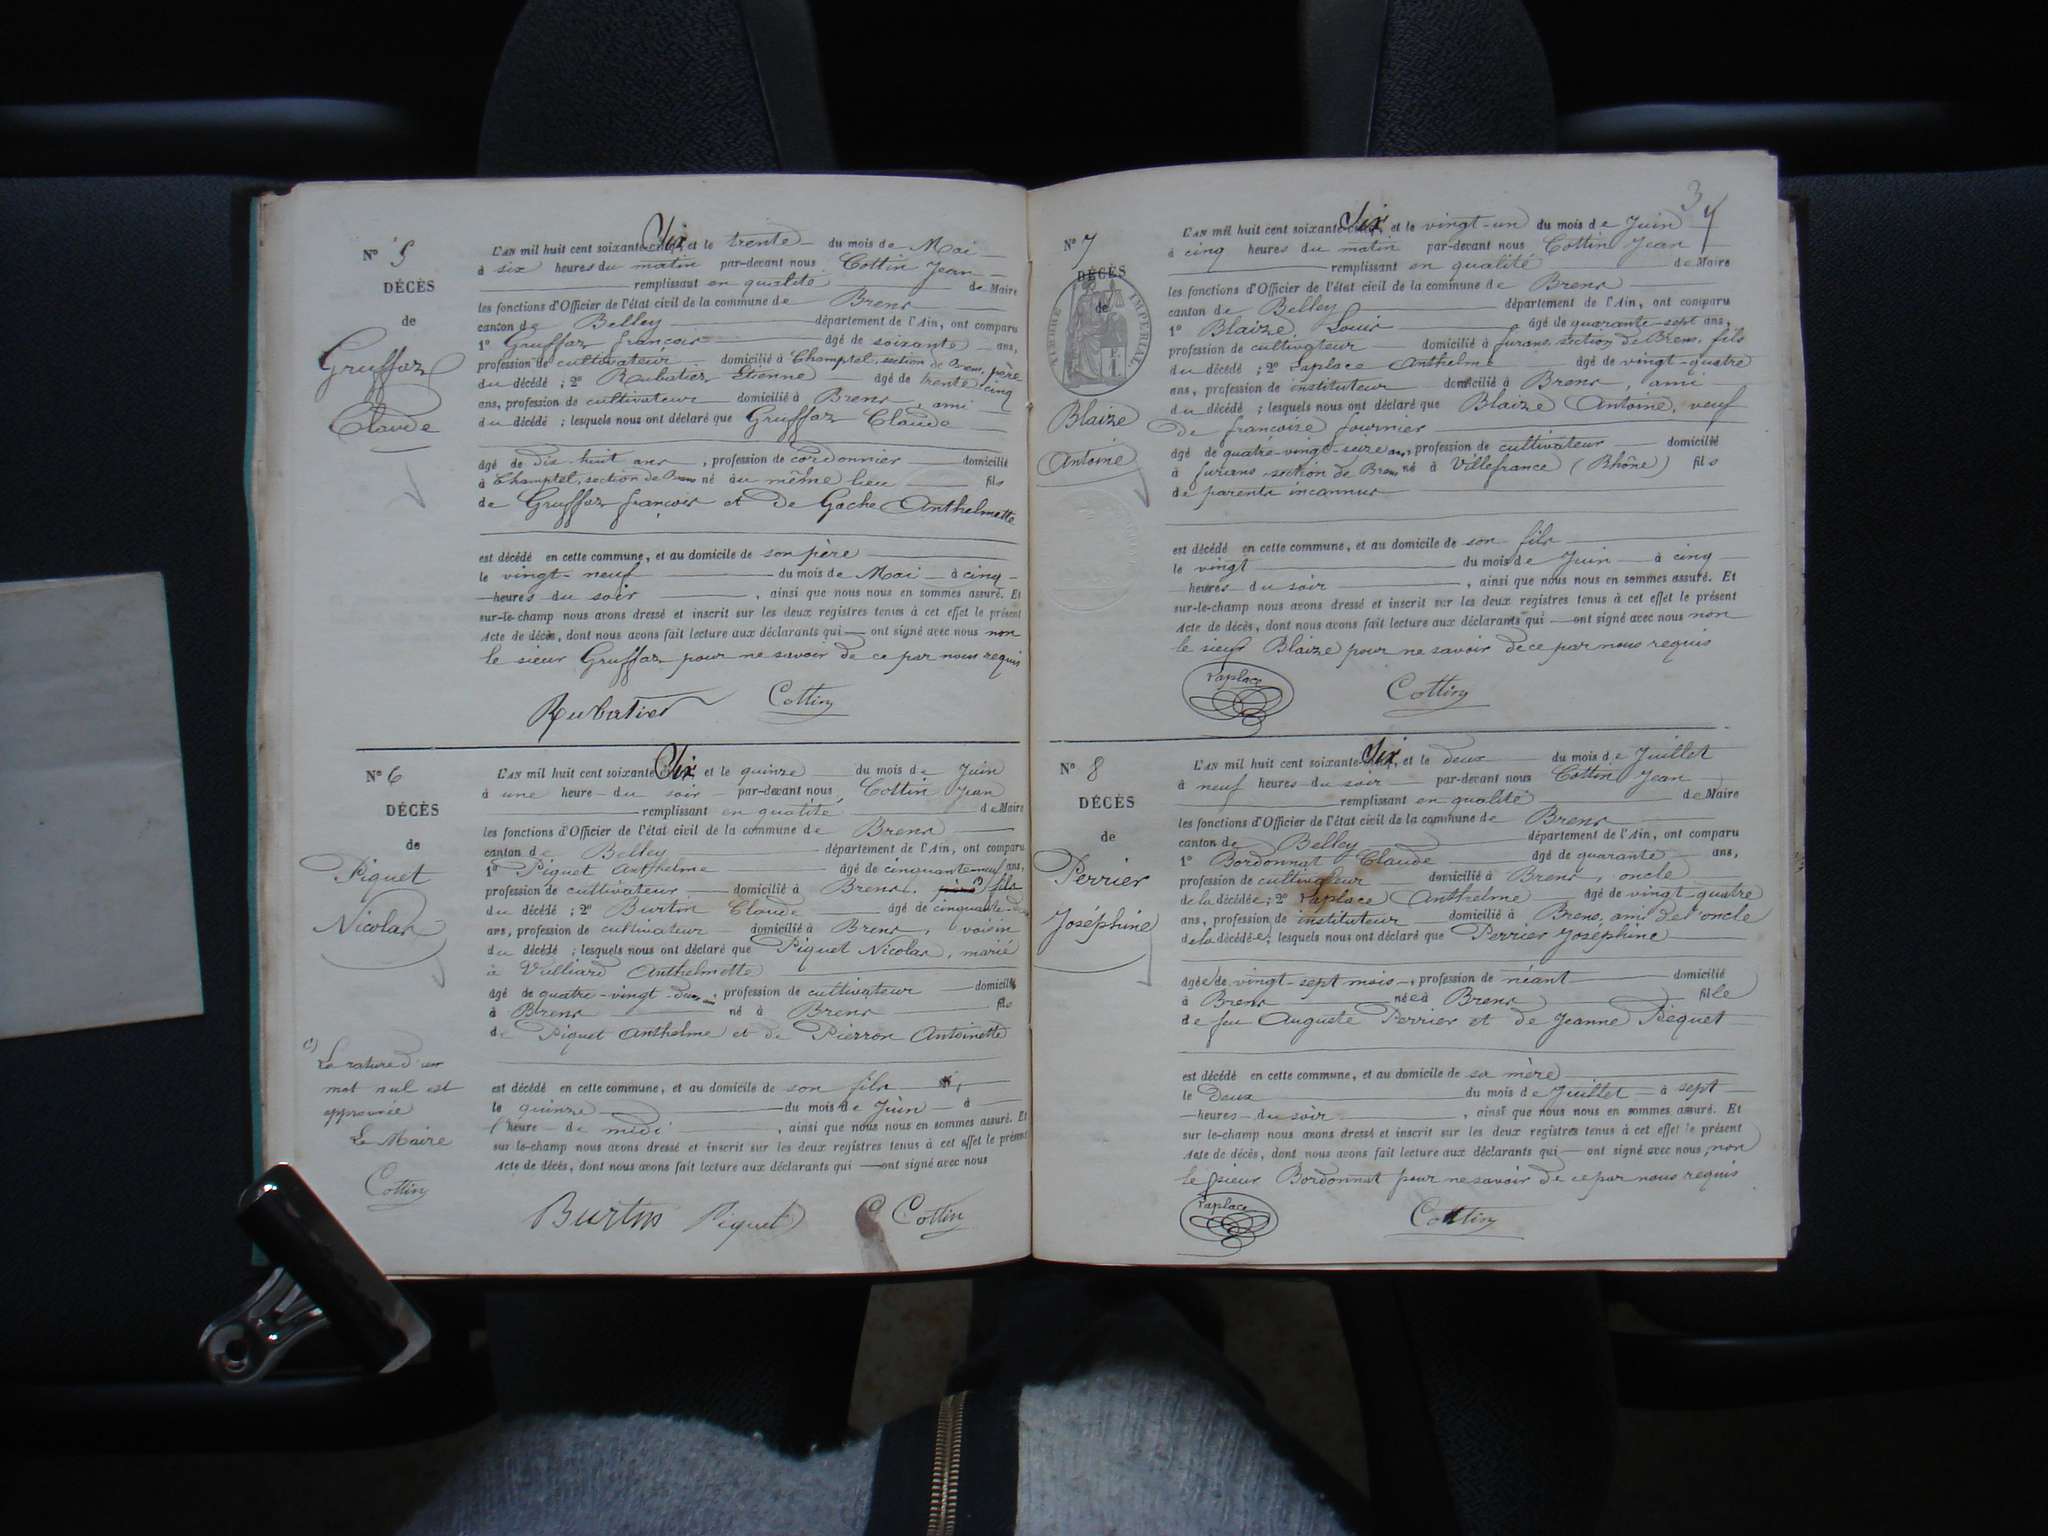 N° 5
DÉCÈS
de
Gruffaz
Claude
L'AN mil huit cent soixante-Six et le trente du mois de Mai
à six heures du matin par-devant nous Cottin Jean
remplissant en qualité de Maire
les fonctions d'Officier de l'état civil de la commune de Brens
canton de Belley département de l'Ain, ont comparu
1° Gruffaz françois âgé de soixante ans,
profession de cultivateur domicilié à Champtel, section de Brens, père
du décédé ; 2° Rubatier Etienne âgé de trente cinq
ans, profession de cultivateur domicilié à Brens, ami
du décédé ; lesquels nous ont déclaré que Gruffaz Claude
âgé de dix-huit ans, profession de cordonnier domicilié
à Champtel, section de Brens né au même lieu fils
de Gruffaz françois et De Gache Anthelmette
est décédé en cette commune, et au domicile de son père
le vingt-neuf du mois de Mai à cinq
heures du soir, ainsi que nous nous en sommes assuré. Et
sur-le-champ nous avons dressé et inscrit sur les deux registres tenus à cet effet le présent
Acte de décès, dont nous avons fait lecture aux déclarants qui ont signé avec nous non
le sieur Gruffaz pour ne savoir de ce par nous requis
Rubatier Cottin
N° 6
DÉCÈS
de
Piquet
Nicolas
L'AN mil huit cent soixante-Six et le quinze du mois de Juin
à une heure du soir par-devant nous Cottin Jean
remplissant en qualité de Maire
les fonctions d'Officier de l'état civil de la commune de Brens
canton de Belley département de l'Ain, ont comparu
1° Piquet Anthelme âgé de cinquante-neuf ans,
profession de cultivateur domicilié à Brens, père fils
du décédé ; 2° Burtin Claude âgé de cinquante
ans, profession de cultivateur domicilié à Brens, voisin
du décédé ; lesquels nous ont déclaré que Piquet Nicolas, marié
à Vulliard Anthelmette
âgé de quatre-vingt-deux ans, profession de cultivateur domicilié
à Brens né à Brens fils
de Piquet Anthelme et de Pierron Antoinette
est décédé en cette commune, et au domicile de son fils
le quinze du mois de Juin à
l'heure de midi, ainsi que nous nous en sommes assuré. Et
sur-le-champ nous avons dressé et inscrit sur les deux registres tenus à cet effet le présent
Acte de décès, dont nous avons fait lecture aux déclarants qui ont signé avec nous
(1)
La rature d'un
mot nul est
approuvée
Le Maire
Cottin
Burtin Piquet C Cottin
34
N° 7
DÉCÈS
de
TIMBRE IMPÉRIAL
F.
1
Blaize
Antoine
L'AN mil huit cent soixante-Six, et le vingt-un du mois de Juin
à cinq heures du matin par-devant nous Cottin Jean
remplissant en qualité de Maire
les fonctions d'Officier de l'état civil de la commune de Brens
canton de Belley département de l'Ain, ont comparu
1° Blaize Louis âgé de quarante-sept ans,
profession de cultivateur domicilié à furans, section de Brens, fils
du décédé ; 2° Laplace Anthelme âgé de vingt-quatre
ans, profession de instituteur domicilié à Brens, ami
du décédé ; lesquels nous ont déclaré que Blaize Antoine, veuf
De françoise fournier
âgé de quatre-vingt-seize ans, profession de cultivateur domicilié
à furans section de Brens né à Villefrance (Rhône) fils
de parents inconnus
est décédé en cette commune, et au domicile de son fils
le vingt du mois de Juin à cinq
heures du soir, ainsi que nous nous en sommes assuré. Et
sur-le-champ nous avons dressé et inscrit sur les deux registres tenus à cet effet le présent
Acte de décès, dont nous avons fait lecture aux déclarants qui ont signé avec nous non
le sieur Blaize pour ne savoir de ce par nous requis
Laplace Cottin
N° 8
DÉCÈS
de
Perrier
Joséphine
L'AN mil huit cent soixante-Six, et le deux du mois de Juillet
à neuf heures du soir par-devant nous Cottin Jean
remplissant en qualité de Maire
les fonctions d'Officier de l'état civil de la commune de Brens
canton de Belley département de l'Ain, ont comparu
1° Bordonnat Claude âgé de quarante ans,
profession de cultivateur domicilié à Brens, oncle
de la décédée ; 2° Laplace Anthelme âgé de vingt-quatre
ans, profession de instituteur domicilié à Brens, ami de l'oncle
de la décédée ; lesquels nous ont déclaré que Perrier Joséphine
âgée de vingt-sept mois, profession de néant domicilié
à Brens née à Brens fille
de feu Auguste Perrier et de Jeanne Pequet
est décédé en cette commune, et au domicile de sa mère
le Deux du mois de Juillet à sept
heures du soir, ainsi que nous nous en sommes assuré. Et
sur le-champ nous avons dressé et inscrit sur les deux registres tenus à cet effet le présent
Acte de décès, dont nous avons fait lecture aux déclarants qui ont signé avec nous, non
le sieur Bordonnat pour ne savoir de ce par nous requis
Laplace Cottin